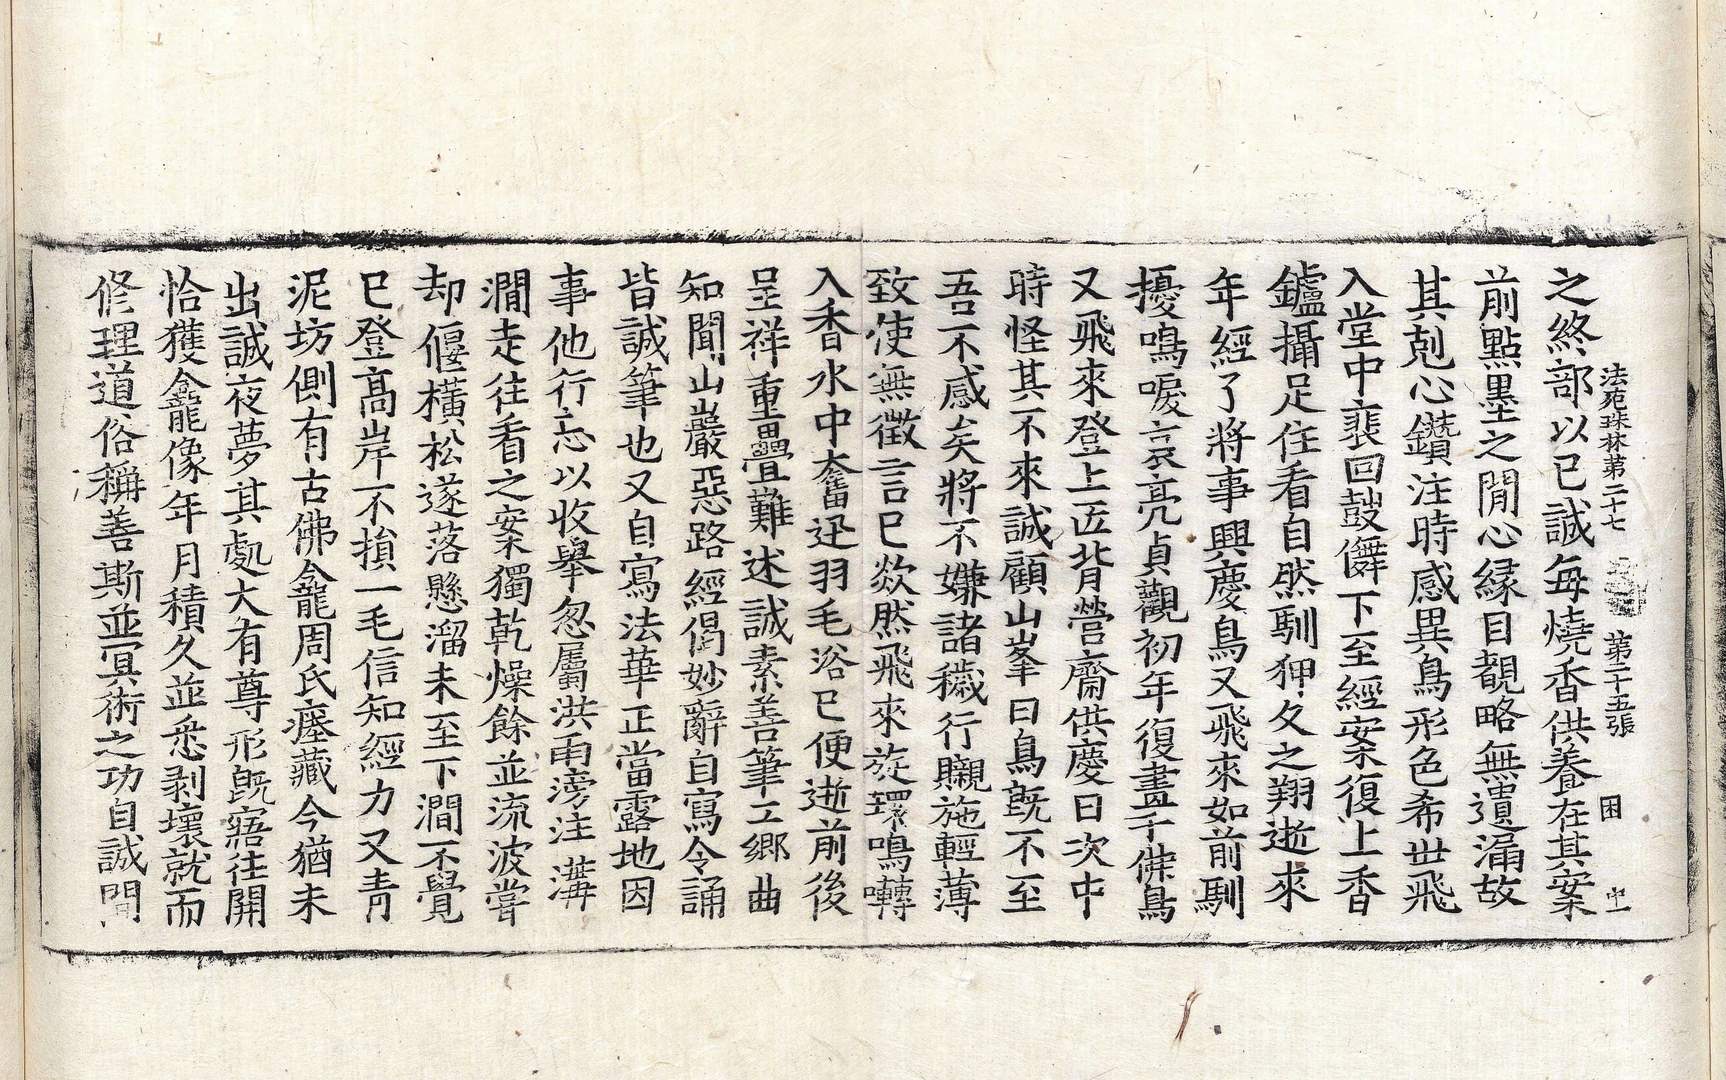 法苑珠林第二十七 第二十五張 困 中一
之終部以已誠每燒香供養在其案
前點墨之閒心緣目覩略無遺漏故
其剋心鑽注時感異鳥形色希世飛
入堂中裴回鼓儛下至經案復上香
鑪攝足住看自然馴狎久之翔逝來
年經了將事興慶鳥又飛來如前馴
擾鳴唳哀亮貞觀初年復畫千佛鳥
又飛來登上匠背營齋供慶日次中
時怪其不來誠顧山峯曰鳥旣不至
吾不感矣將不嫌諸穢行矙施輕薄
致使無徵言已欻然飛來旋環鳴囀
入香水中奮迅羽毛浴已便逝前後
呈祥重疊難述誠素善筆工鄉曲
知聞山巖惡路經偈妙辭自寫令誦
皆誠筆也又自寫法華正當露地因
事他行忘以收舉忽屬洪雨滂注溝
澗走往看之案獨乾燥餘並流波嘗
却偃橫松遂落懸溜未至下澗不覺
已登高岸不損一毛信知經力又青
泥坊側有古佛龕周氏瘞藏今猶未
出誠夜夢其處大有尊形旣寤往開
恰獲龕像年月積久並悉剥壞就而
修理道俗稱善斯並冥術之功自誠開